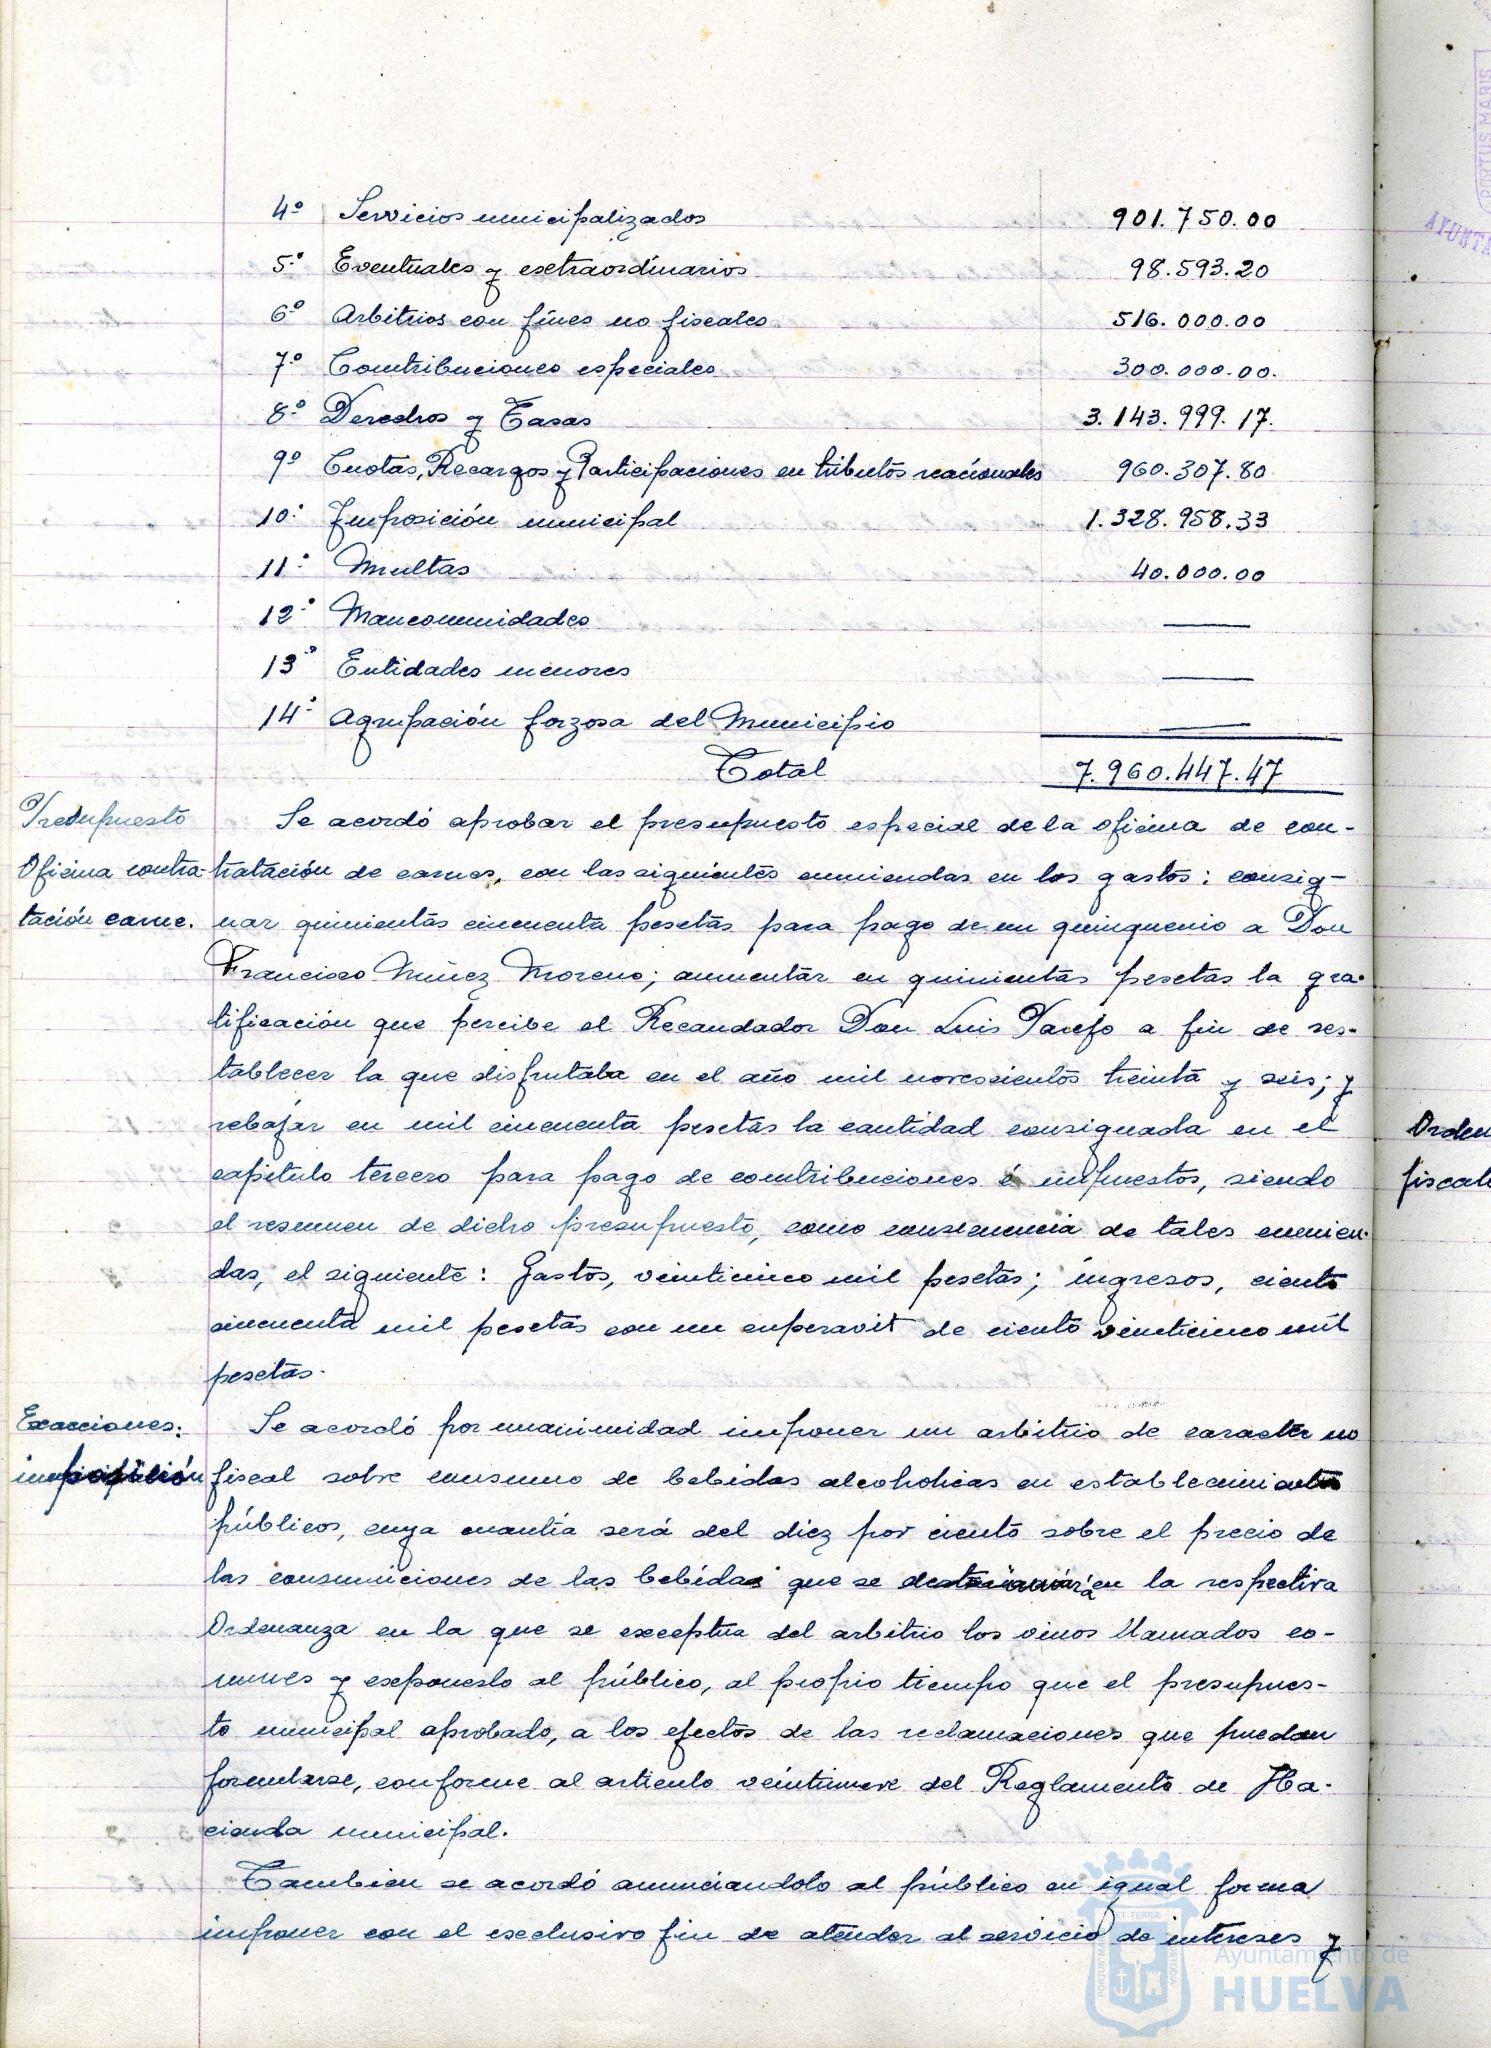 4º Servicios municipalizados 901.750.00
5.º Eventuales y extraordinarios 98.593.20
6º Arbitrios con fines no fiscales 516.000.00
7.º Contribuciones especiales 300.000.00.
8º Derechos y Tasas 3.143.999.17.
9º Cuotas, Recargos y Participaciones en tributos nacionales 960.307.80
10.º Imposición municipal 1.328.958.33
11.º Multas 40.000.00
12.º Mancomunidades ———
13º Entidades menores ———
14.º Agrupación forzosa del Municipio ———
Total 7.960.447.47
Presupuesto
Oficina contra-
tación carne.
Se acordó aprobar el presupuesto especial de la oficina de con-
tratación de carnes, con las siguientes enmiendas en los gastos: consig-
nar quinientas cincuenta pesetas para pago de un quinquenio a Don
Francisco Núñez Moreno; aumentar en quinientas pesetas la gra-
tificación que percibe el Recaudador Don Luis Parejo a fin de res-
tablecer la que disfrutaba en el año mil novescientos treinta y seis; y
rebajar en mil cincuenta pesetas la cantidad consignada en el
capitulo tercero para pago de contribuciones é impuestos, siendo
el resumen de dicho presupuesto, como consecuencia de tales enmien-
das, el siguiente: Gastos, veinticinco mil pesetas; ingresos, ciento
cincuenta mil pesetas con un superavit de ciento veinticinco mil
pesetas.
Exacciones:
imposición
Se acordó por unanimidad imponer un arbitrio de caracter no
fiscal sobre consumo de bebidas alcoholicas en establecimientos
públicos, cuya cuantia será del diez por ciento sobre el precio de
las consumiciones de las bebidas que se en la respectiva
Ordenanza en la que se exceptua del arbitrio los vinos llamados co-
munes y exponerlo al público, al propio tiempo que el presupues-
to municipal aprobado, a los efectos de las reclamaciones que puedan
formularse, conforme al articulo veintinueve del Reglamento de Ha-
cienda municipal.
Tambien se acordó anunciandolo al público en igual forma
imponer con el exclusivo fin de atender al servicio de intereses y
Orden
fiscal
PORTUS MARIS
AYUNTA
Ayuntamiento de
HUELVA